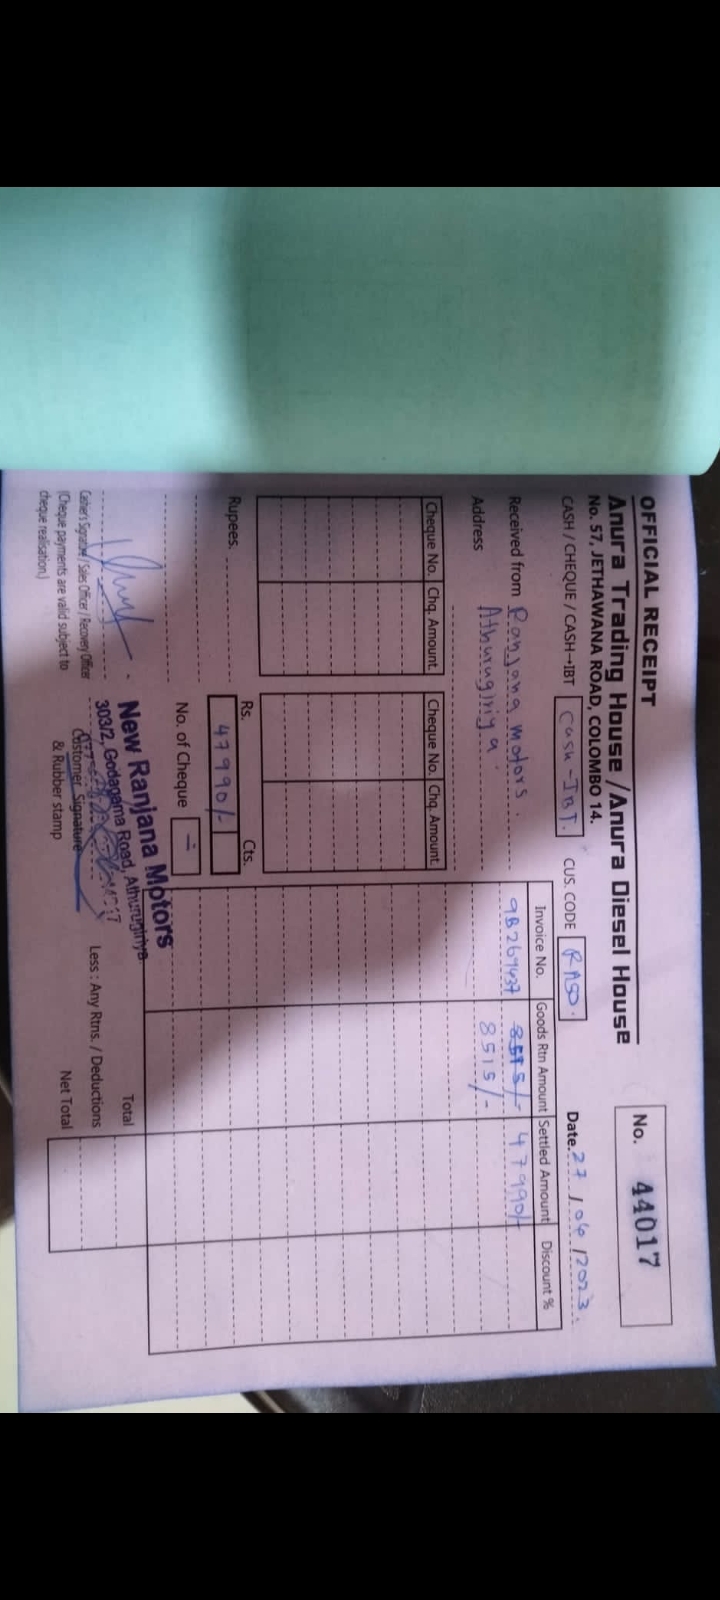 OFFICIAL RECEIPT
Anura Trading House / Anura Diesel House
No. 57, JETHAWANA ROAD, COLOMBO 14.
No. 44017
CASH / CHEQUE / CASH→IBT Cash-IBT. CUS. CODE Date. 27/04/2023.
Received from Ranjana motors.
Address Athurugiriya.
Cheque No. Chq. Amount. Cheque No. Chq. Amount.
Invoice No. Goods Rtn Amount Settled Amount Discount %
9B269437 47990/-
8515/-
Rupees. Rs. Cts.
47990/-
No. of Cheque
Total
Less : Any Rtns. / Deductions
Net Total
New Ranjana Motors
303/2, Godagama Road, Athurugiriya
Cashier's Signature / Sales Officer / Recovery Officer
(Cheque payments are valid subject to
cheque realisation.)
Customer Signature
& Rubber stamp